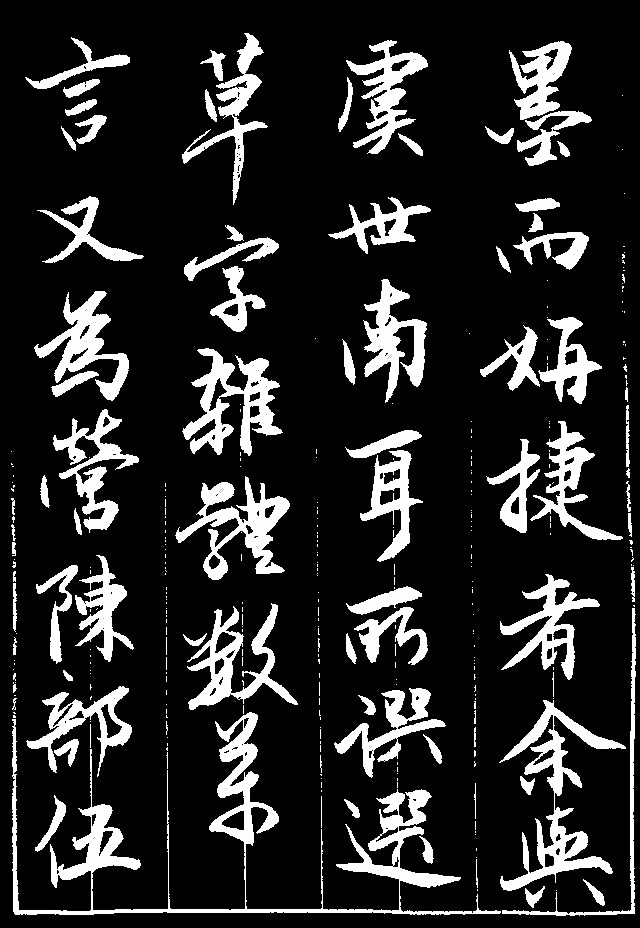 墨而妍捷者余與
虞世南耳所譔選
草字雜體數萬
言又為營陳部伍